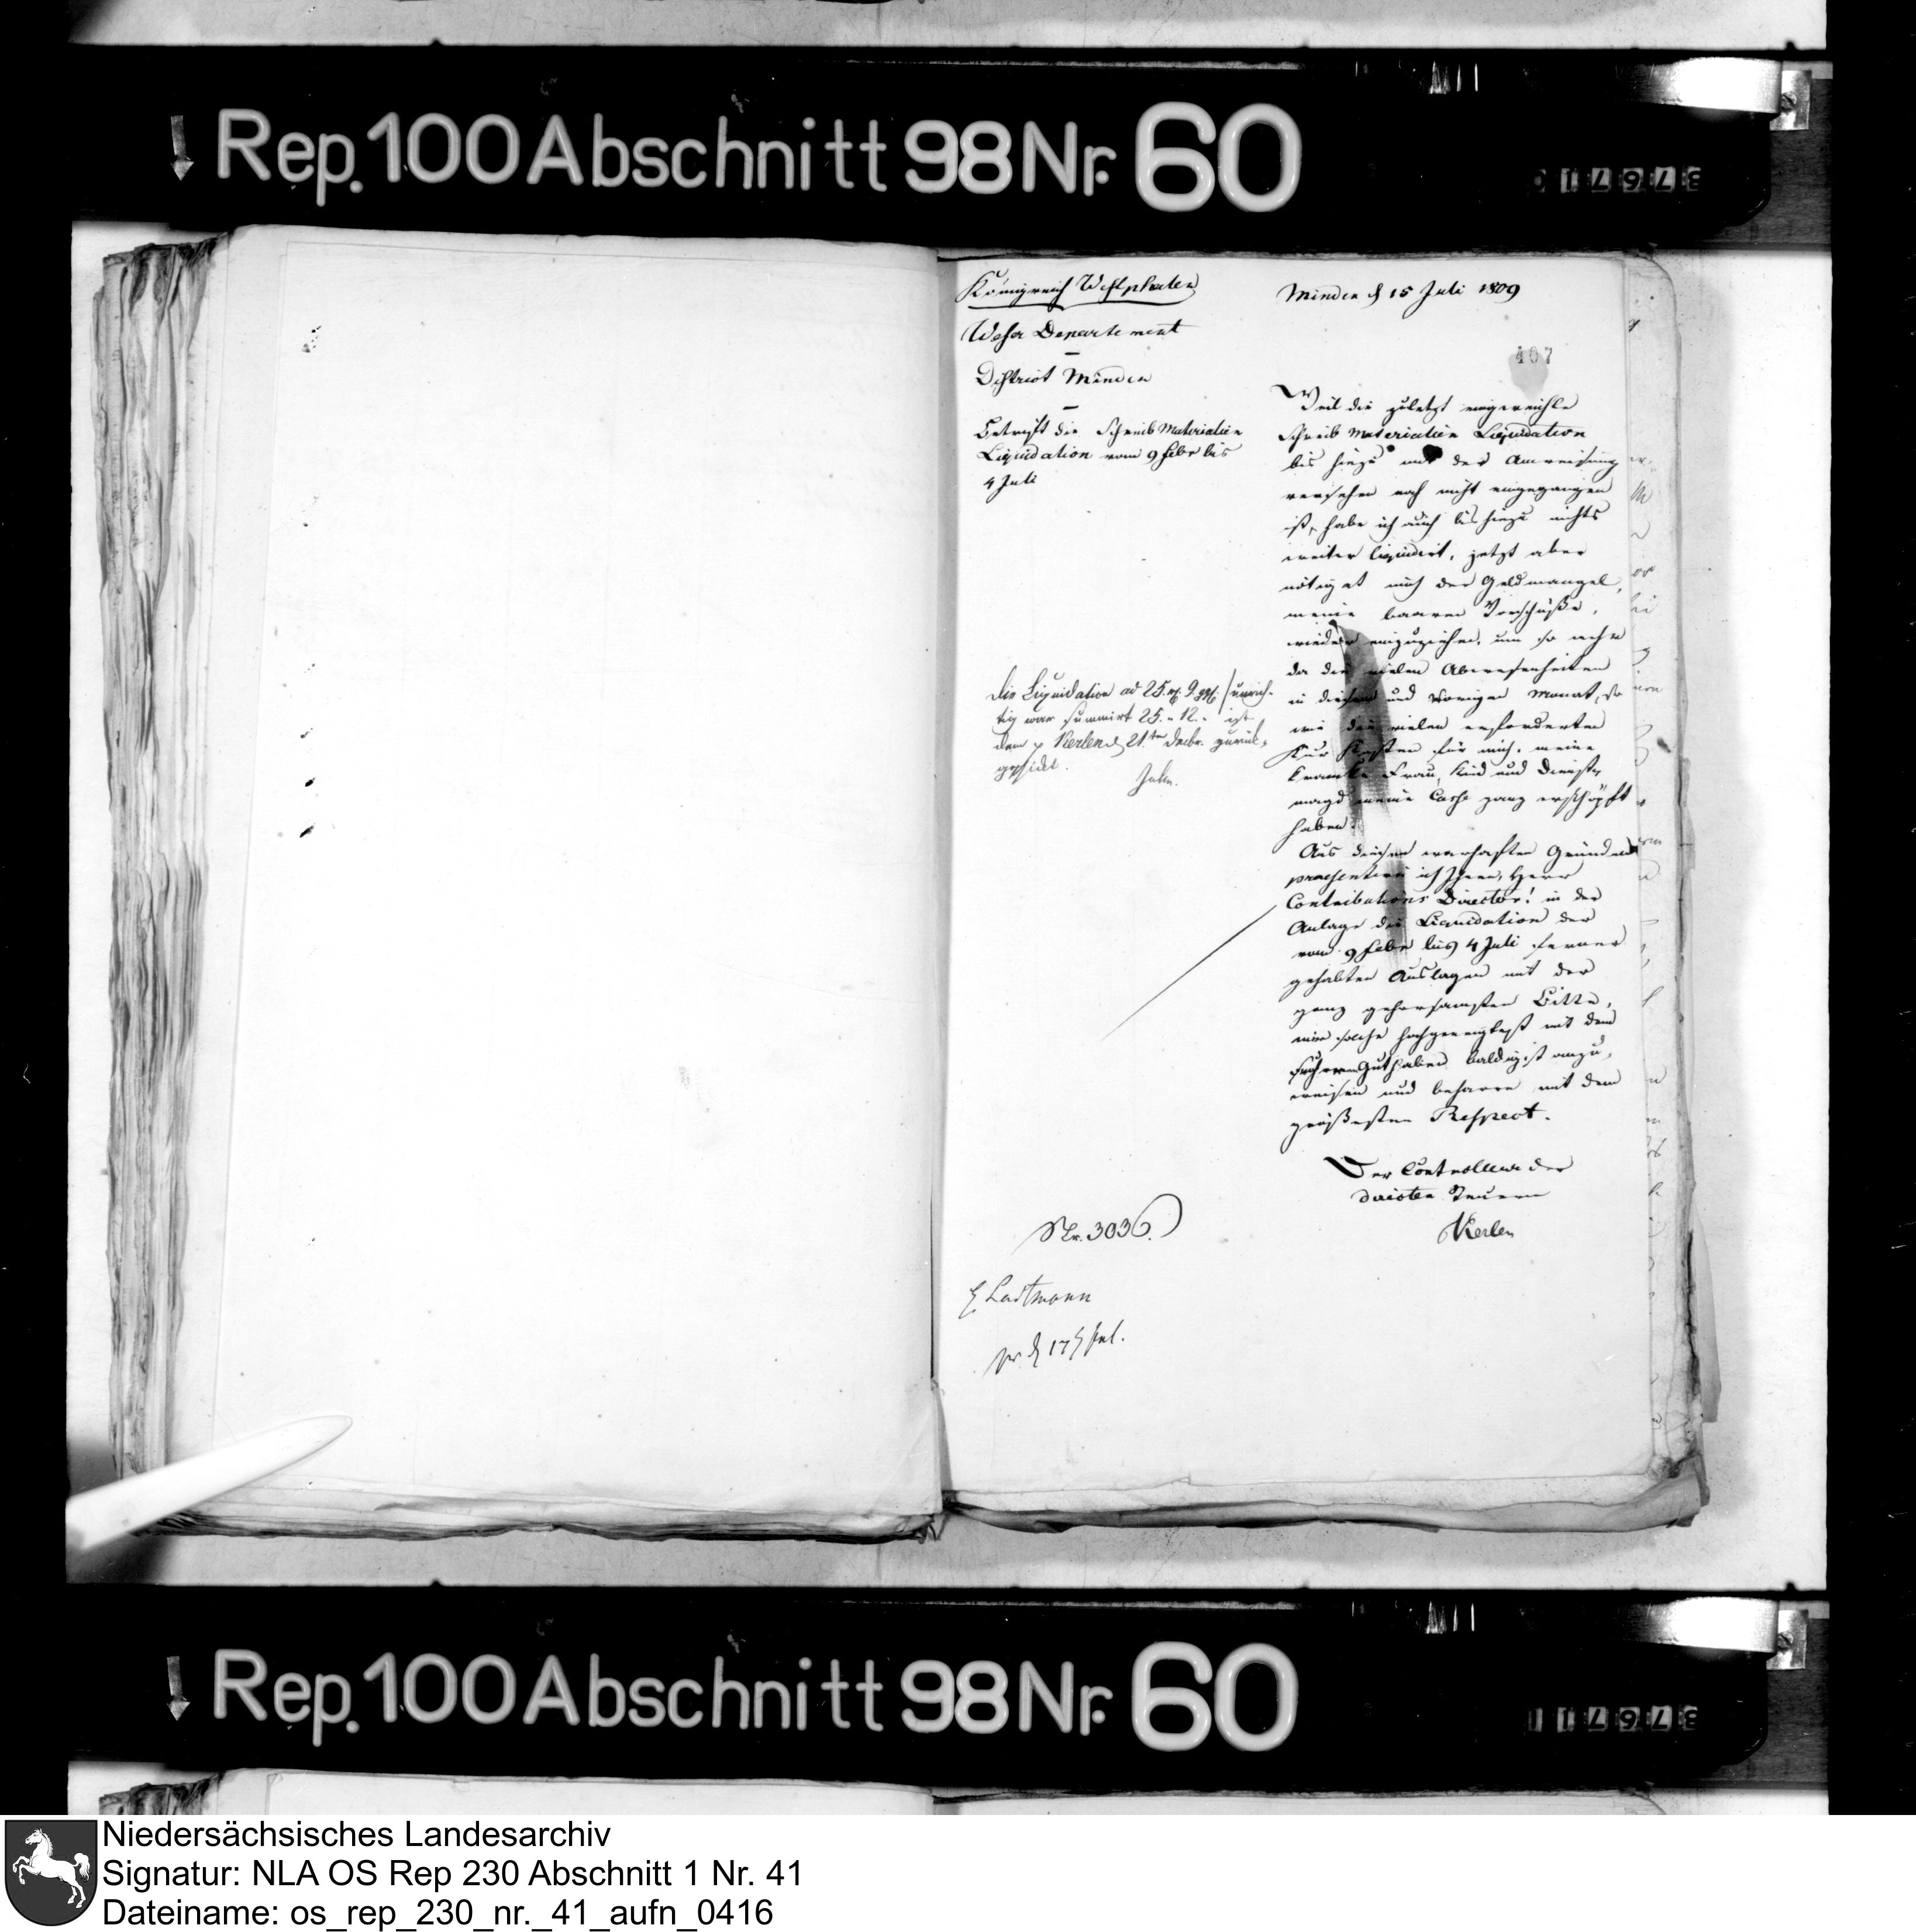 Rep. 100 Abschnitt 98 Nr. 60
37671
Königreich Westphalen
Weser Departement
District Minden
Betrifft die Schreib Materialien
Liquidation vom 9 Febr bis
4 Juli
Minden d 15 Juli 1809
407
Weil die zuletzt eingereichte
Schreib Materialien Liquidation
bis hiezu mit der Anweisung
versehen noch nicht eingegangen
ist, habe ich auch bis hiezu nichts
weiter liquidirt, jetzt aber
nötiget mich der Geldmangel,
meine baaren Vorschüße,
wieder einzuziehen, um so mehr
da die vielen Abwesenheiten
in diesem und vorigen Monat, so
wie die vielen erforderten
Kur Kosten für mich, meine
kranke Frau, Kind und Dienst-
magd meine Casse ganz erschöpft
haben.
Aus diesen warhaften Gründen
praesentire ich Ihnen, Herr
Contributions Director! in der
Anlage die Liquidation der
vom 9 Febr bis 4 Juli ferner
gehabten Auslagen mit der
ganz gehorsamsten Bitte,
mir solche hochgeneigtest mit dem
früheren Guthaben baldigst anzu-
weisen und beharre mit dem
größesten Respect.
Der Controlleur der
directen Steuern
Kerlen
Die Liquidation ad 25 rt. 9 ggl. /unrich-
tig war summirt 25 " 12 " ist
dem p Kerlen d 21ten Decbr. zurück-
geschickt.
Nr. 3036.
H Lastmann
pr. d 17 Jul.
Rep. 100 Abschnitt 98 Nr. 60
37671
Niedersächsisches Landesarchiv
Signatur: NLA OS Rep 230 Abschnitt 1 Nr. 41
Dateiname: os_rep_230_nr._41_aufn_0416